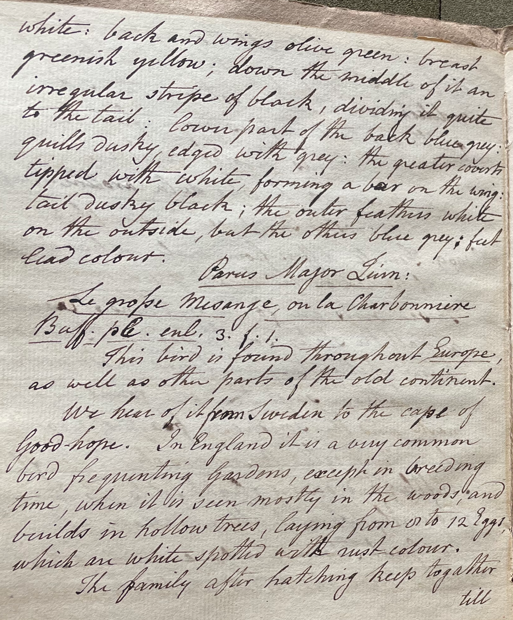 white: back and wings olive green: breast
greenish yellow; down the middle of it an
irregular stripe of black, dividing it quite
to the tail: lower part of the back blue grey:
quills dusky, edged with grey: the greater coverts
tipped with white, forming a bar on the wing:
tail dusky black; the outer feathers white
on the outside, but the others blue grey; feet
lead colour.
Parus Major Linn:
Le grosse Mesange ou la Charbonniere
Buff. pl. enl. 3. f. 1.
This bird is found throughout Europe,
as well as other parts of the old continent.
We hear of it from Sweden to the cape of
Good-hope. In England it is a very common
bird frequenting Gardens, except in breeding
time, when it is seen mostly in the woods, and
builds in hollow trees, laying from 8 to 12 Eggs,
which are white spotted with rust colour.
The family after hatching keep together
till